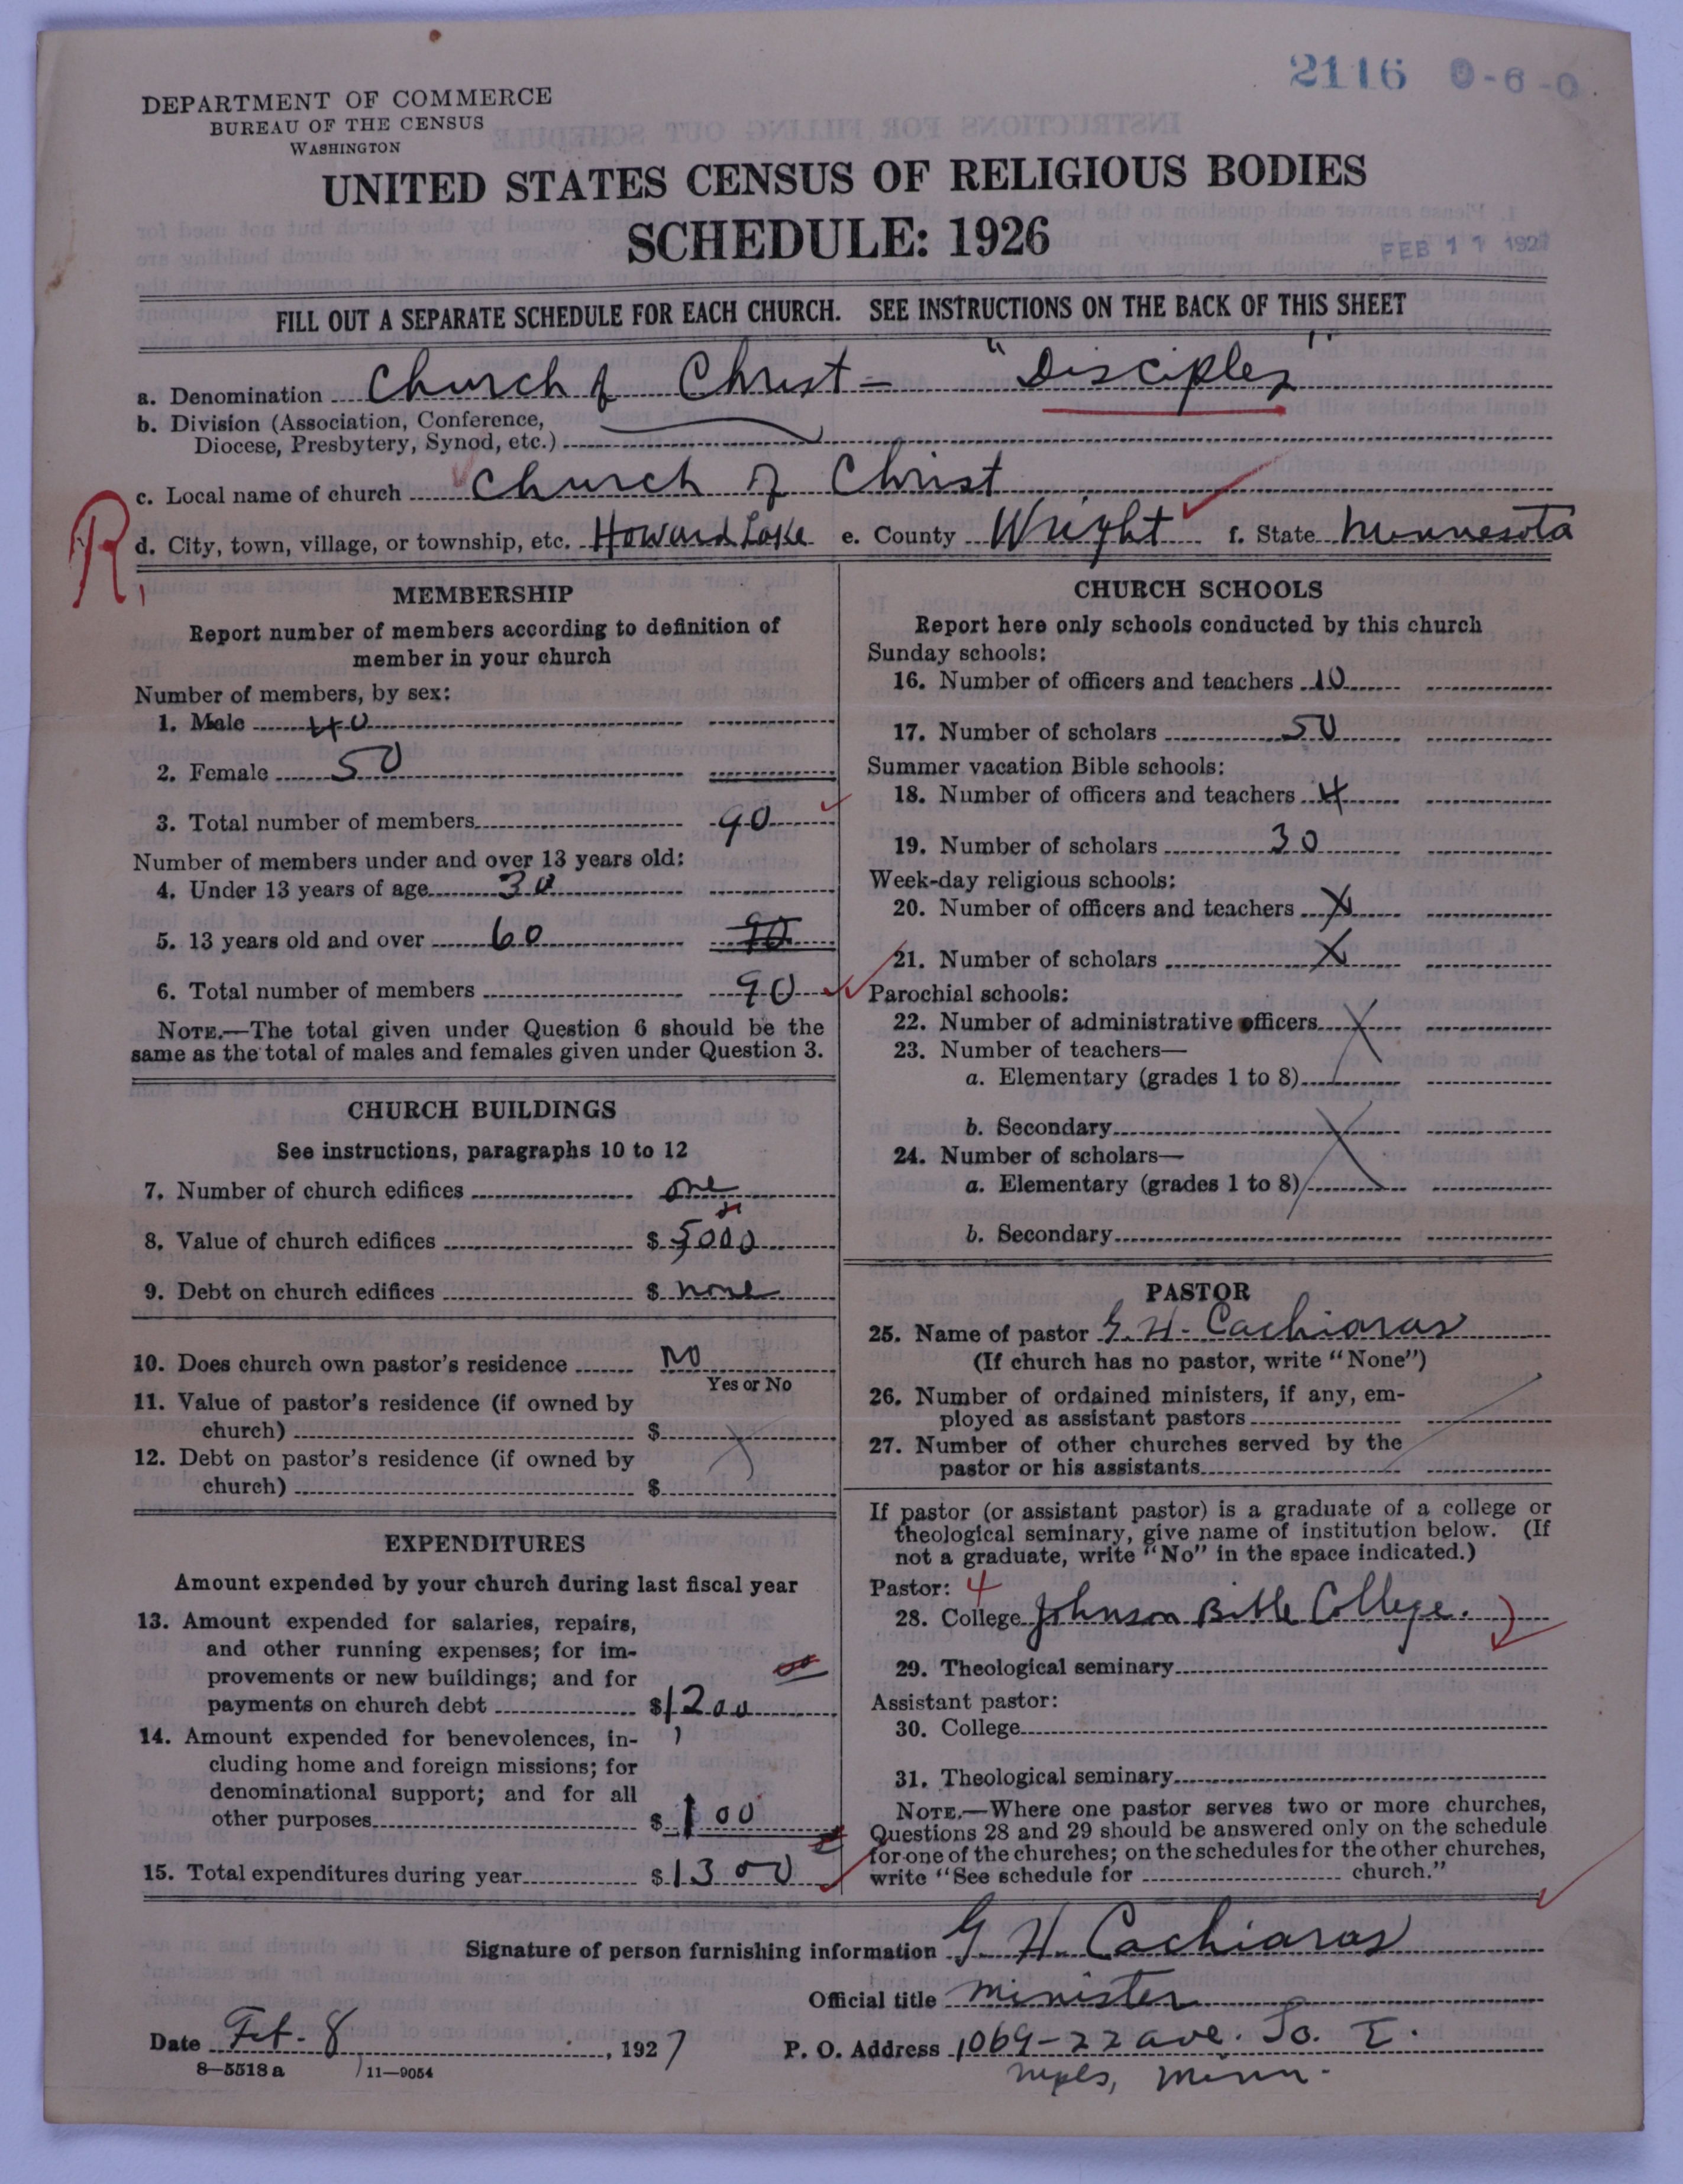 2116 0-6-0
DEPARTMENT OF COMMERCE
BUREAU OF THE CENSUS
WASHINGTON
UNITED STATES CENSUS OF RELIGIOUS BODIES
SCHEDULE: 1926
FEB 11 1927
FILL OUT A SEPARATE SCHEDULE FOR EACH CHURCH. SEE INSTRUCTIONS ON THE BACK OF THIS SHEET
a. Denomination Church of Christ - "Disciples"
b. Division (Association, Conference,
Diocese, Presbytery, Synod, etc.)
c. Local name of church Church of Christ
R, d. City, town, village, or township, etc. Howard Lake e. County Wright f. State Minnesota
MEMBERSHIP
Report number of members according to definition of
member in your church
Number of members, by sex:
1. Male 40
2. Female 50
3. Total number of members 90
Number of members under and over 13 years old:
4. Under 13 years of age 30
5. 13 years old and over 60 90
6. Total number of members 90
NOTE.—The total given under Question 6 should be the
same as the total of males and females given under Question 3.
CHURCH BUILDINGS
See instructions, paragraphs 10 to 12
7. Number of church edifices one
8. Value of church edifices $ 5000
9. Debt on church edifices $ none
10. Does church own pastor's residence No
Yes or No
11. Value of pastor's residence (if owned by
church) $
12. Debt on pastor's residence (if owned by
church) $
EXPENDITURES
Amount expended by your church during last fiscal year
13. Amount expended for salaries, repairs,
and other running expenses; for im-
provements or new buildings; and for
payments on church debt $ 1200
14. Amount expended for benevolences, in-
cluding home and foreign missions; for
denominational support; and for all
other purposes $ 100
15. Total expenditures during year $ 1300
CHURCH SCHOOLS
Report here only schools conducted by this church
Sunday schools:
16. Number of officers and teachers 10
17. Number of scholars 50
Summer vacation Bible schools:
18. Number of officers and teachers 4
19. Number of scholars 30
Week-day religious schools:
20. Number of officers and teachers X
21. Number of scholars X
Parochial schools:
22. Number of administrative officers X
23. Number of teachers—
a. Elementary (grades 1 to 8)
b. Secondary
24. Number of scholars—
a. Elementary (grades 1 to 8)
b. Secondary
PASTOR
25. Name of pastor G. H. Cachiaras
(If church has no pastor, write "None")
26. Number of ordained ministers, if any, em-
ployed as assistant pastors
27. Number of other churches served by the
pastor or his assistants
If pastor (or assistant pastor) is a graduate of a college or
theological seminary, give name of institution below. (If
not a graduate, write "No" in the space indicated.)
Pastor: 4
28. College Johnson Bible College.
29. Theological seminary
Assistant pastor:
30. College
31. Theological seminary
NOTE.—Where one pastor serves two or more churches,
Questions 28 and 29 should be answered only on the schedule
for one of the churches; on the schedules for the other churches,
write "See schedule for church."
Signature of person furnishing information G. H. Cachiaras
Official title Minister
Date Feb. 8, 1927 P. O. Address 1069-22 ave. So. E.
Mpls, Minn.
8-5518a 11-9054